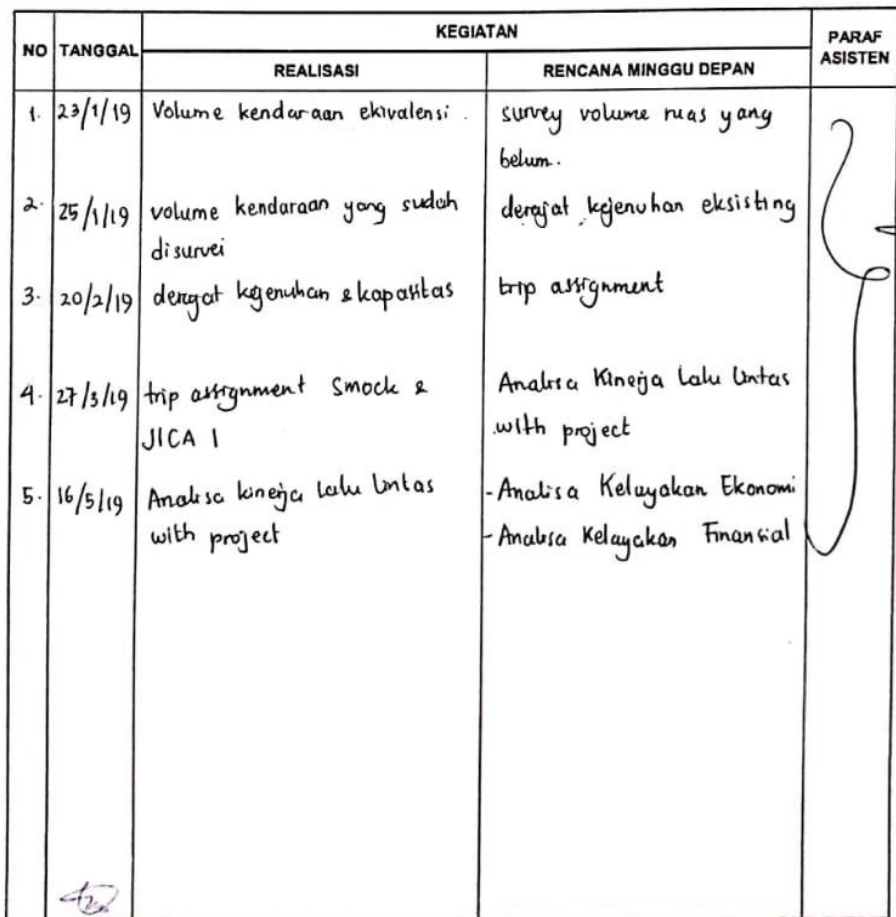 NO TANGGAL KEGIATAN PARAF ASISTEN
REALISASI RENCANA MINGGU DEPAN
1. 23/1/19 Volume kendaraan ekivalensi. survey volume ruas yang
belum.
2. 25/1/19 volume kendaraan yang sudah derajat kejenuhan eksisting
disurvei
3. 20/2/19 derajat kejenuhan & kapasitas trip assignment
4. 27/3/19 trip assignment Smock & Analisa Kinerja Lalu Lintas
JICA 1 with project
5. 16/5/19 Analisa kinerja lalu lintas - Analisa Kelayakan Ekonomi
with project - Analisa Kelayakan Finansial